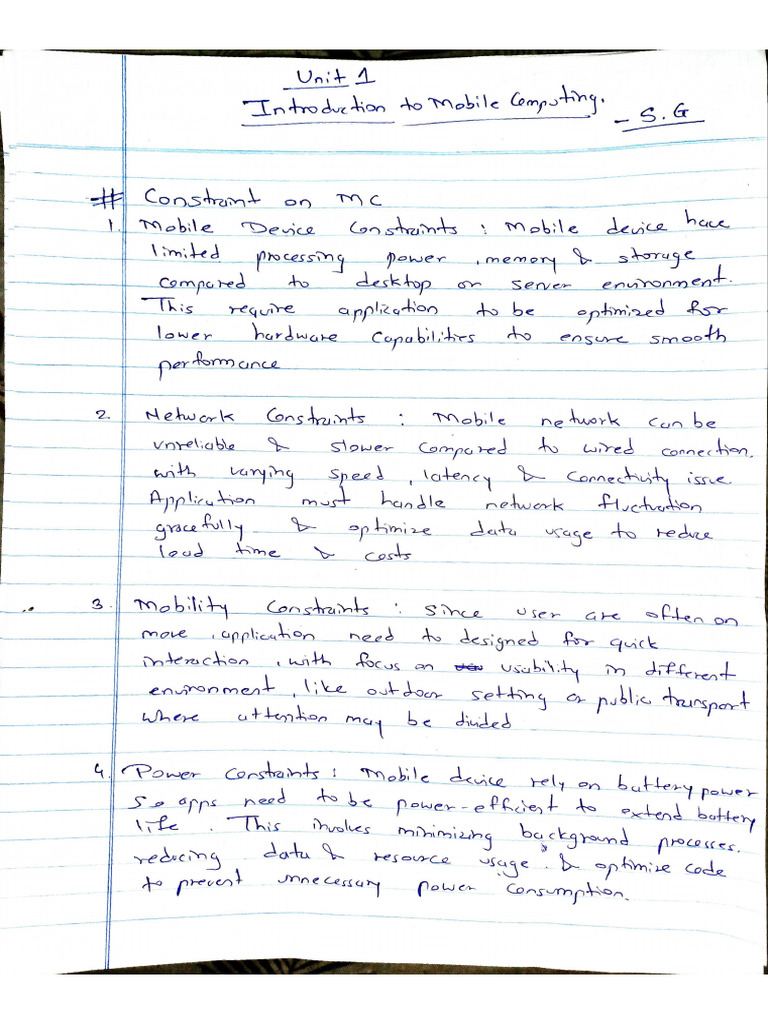 Unit 1
Introduction to Mobile Computing.
- S.G
# Constraint on MC
1. Mobile Device Constraints : Mobile device have
limited processing power , memory & storage
compared to desktop or server environment.
This require application to be optimized for
lower hardware capabilities to ensure smooth
performance
2. Network Constraints : Mobile network can be
unreliable & slower compared to wired connection.
with varying speed , latency & connectivity issue
Application must handle network fluctuation
gracefully & optimize data usage to reduce
load time & costs
3. Mobility Constraints : Since user are often on
move , application need to designed for quick
interaction , with focus on usability in different
environment , like outdoor setting or public transport
where attention may be divided
4. Power Constraints : Mobile device rely on battery power
So apps need to be power-efficient to extend battery
life . This involves minimizing background processes.
reducing data & resource usage . & optimize code
to prevent unnecessary power consumption.